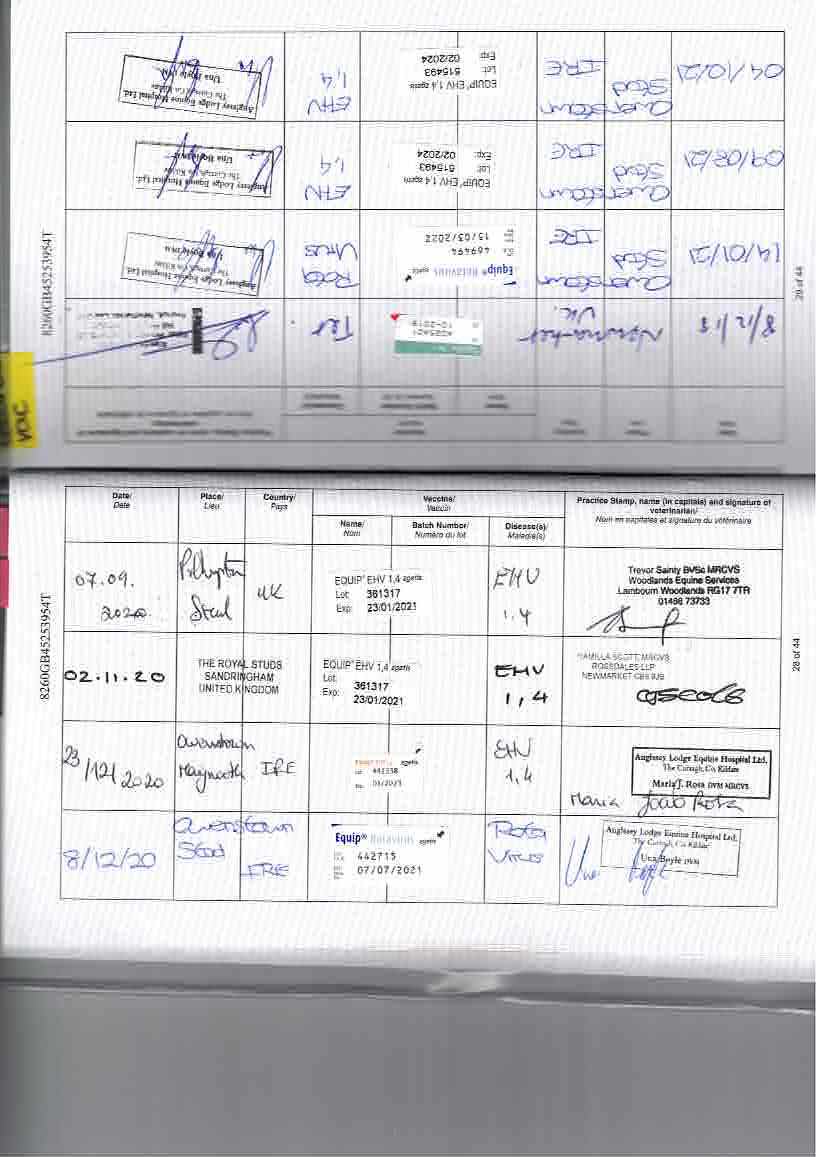 04/10/21
Overstown
Stud
IRE
EQUIP® EHV 1,4 zoetis
Lot: 515493
Exp: 02/2024
EHV
1,4
Anglesey Lodge Equine Hospital Ltd.
The Curragh, Co. Kildare
Una Boyle DVM
Stud
IRE
EQUIP® EHV 1,4 zoetis
Lot: 515493
Exp: 02/2024
EHV
1,4
Anglesey Lodge Equine Hospital Ltd.
The Curragh, Co. Kildare
Una Boyle DVM
14/01/21
Stud
IRE
Equip® Rotavirus zoetis
469494
15/03/2022
Rota
Virus
Anglesey Lodge Equine Hospital Ltd.
The Curragh, Co. Kildare
Una Boyle DVM
8/12/18
Newmarket
UK.
A085A01
10-2019
Tet
8260GB45253954T
29 of 44
VAC
Date/
Date
Place/
Lieu
Country/
Pays
Vaccine/
Vaccin
Name/
Nom
Batch Number/
Numéro du lot
Disease(s)/
Maladie(s)
Practice Stamp, name (in capitals) and signature of
veterinarian/
Nom en capitales et signature du vétérinaire
07.09.
2020.
Stud
UK
EQUIP® EHV 1,4 zoetis
Lot: 361317
Exp: 23/01/2021
EHV
1,4
Trevor Sainty BVSc MRCVS
Woodlands Equine Services
Lambourn Woodlands RG17 7TR
01488 73733
02.11.20
THE ROYAL STUDS
SANDRINGHAM
UNITED KINGDOM
EQUIP® EHV 1,4 zoetis
Lot: 361317
Exp: 23/01/2021
EHV
1,4
CAMILLA SCOTT MRCVS
ROSSDALES LLP
NEWMARKET CB8 9JB
23/12/2020
Maynooth IRE
03/2021
EHV
1,4
Anglesey Lodge Equine Hospital Ltd.
The Curragh, Co. Kildare
Maria J. Rosa DVM MRCVS
Maria João Rosa
8/12/20
Stud
IRE
Equip® Rotavirus zoetis
442715
07/07/2021
Rota
Virus
Anglesey Lodge Equine Hospital Ltd.
The Curragh, Co. Kildare
Una Boyle DVM
Una Boyle
8260GB45253954T
28 of 44